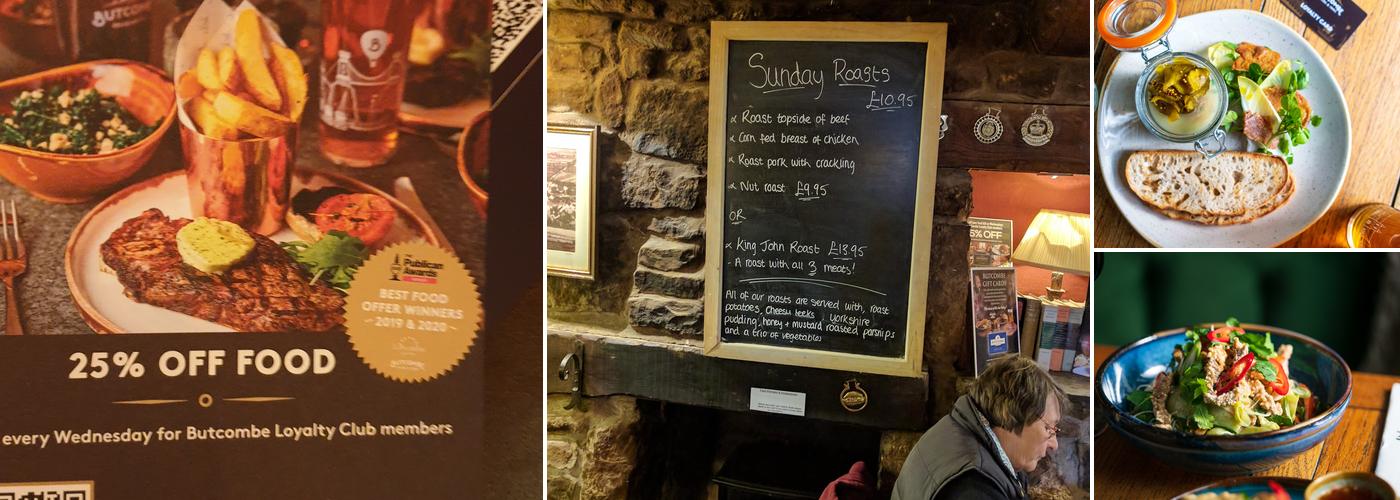 BUTCOMBE
The Publican Awards
BEST FOOD
OFFER WINNERS
2019 & 2020
25% OFF FOOD
every Wednesday for Butcombe Loyalty Club members
Sunday Roasts
£10.95
Roast topside of beef
Corn fed breast of chicken
Roast pork with crackling
Nut roast £9.95
OR
King John Roast £13.95
- A roast with all 3 meats!
All of our roasts are served with, roast
potatoes, cheesy leeks, Yorkshire
pudding, honey + mustard roasted parsnips
and a trio of vegetables
25% OFF
BUTCOMBE
GIFT CARDS
LOYALTY CARD